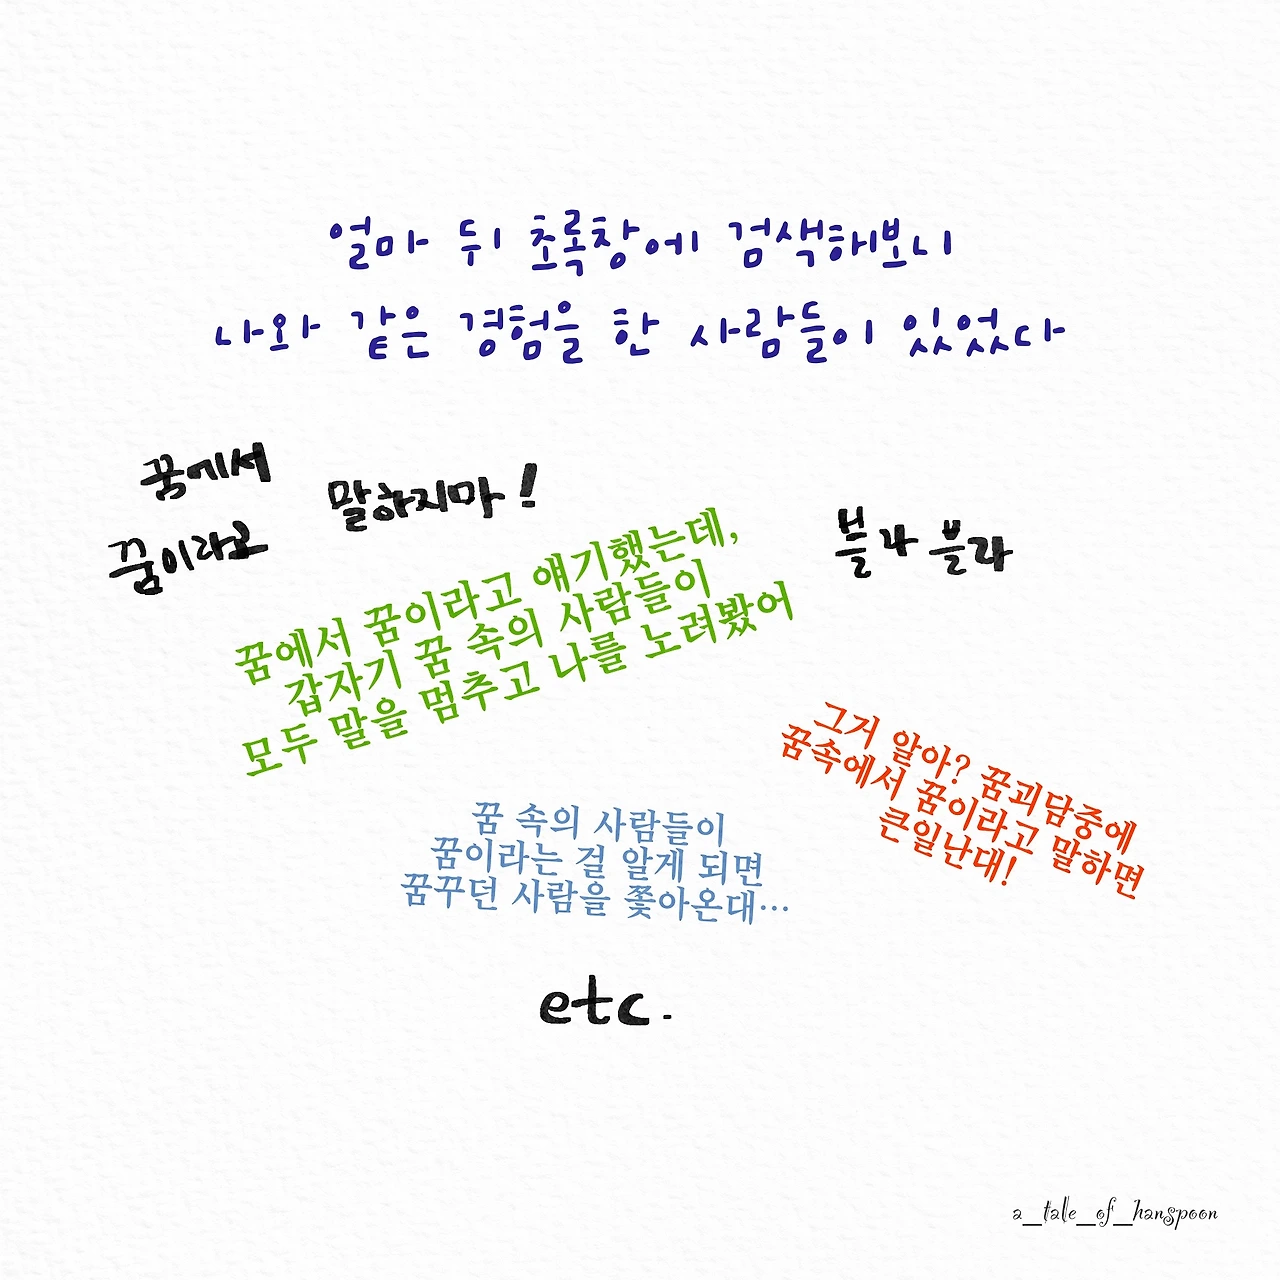 얼마 뒤 초록창에 검색해보니
나와 같은 경험을 한 사람들이 있었다
꿈에서
꿈이라고
말하지마!
블라 블라
꿈에서 꿈이라고 얘기했는데,
갑자기 꿈 속의 사람들이
모두 말을 멈추고 나를 노려봤어
그거 알아? 꿈괴담중에
꿈속에서 꿈이라고 말하면
큰일난대!
꿈 속의 사람들이
꿈이라는 걸 알게 되면
꿈꾸던 사람을 쫓아온대…
etc.
a_tale_of_hanspoon